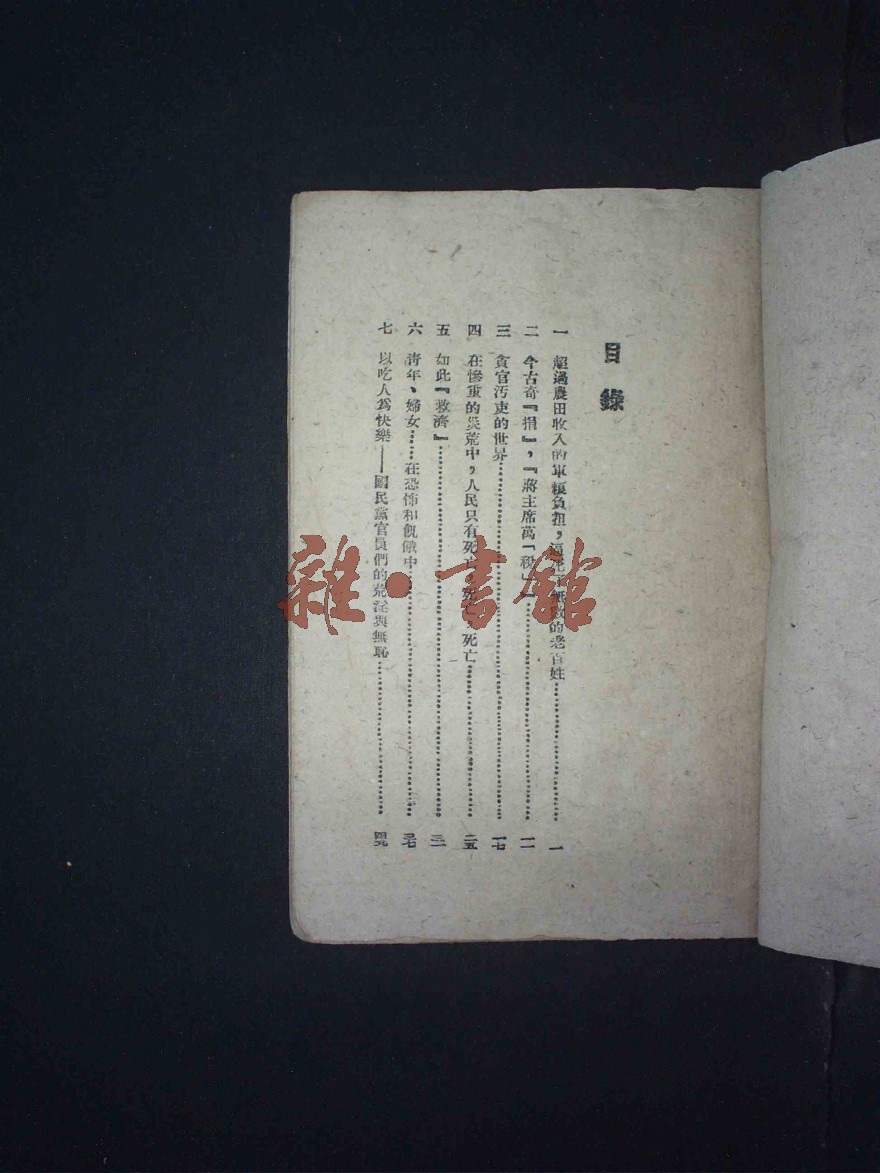 目錄
一 超過農田收入的軍糧負担，逼死了無數的老百姓……一
二 今古奇『捐』，『蔣主席萬「稅」』……一一
三 貪官汚吏的世界……一七
四 在慘重的災荒中，人民只有死亡……死亡……二五
五 如此『救濟』……三一
六 靑年、婦女……在恐怖和飢餓中……三七
七 以吃人爲快樂——國民黨官員們的荒淫與無恥……四九
雜·書館